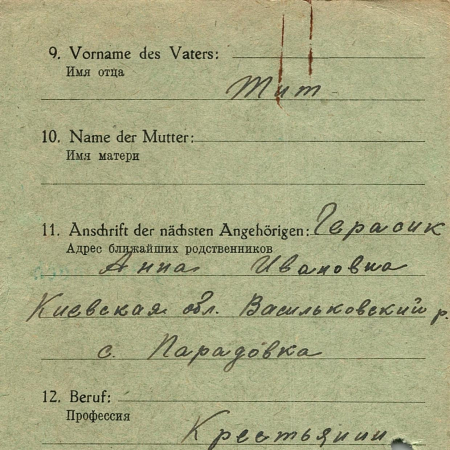 9. Vorname des Vaters:
Имя отца
Тит
10. Name der Mutter:
Имя матери
11. Anschrift der nächsten Angehörigen: Герасик
Адрес ближайших родственников
Анна Ивановна
Киевская обл. Васильковский р.
с. Парадовка
12. Beruf:
Профессия
Крестьянин